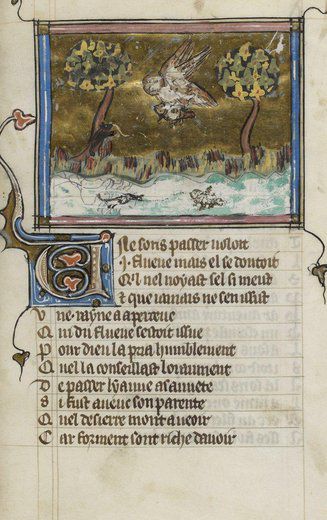 UNe soris passer uoloit
.I. flueue mais el se doutoit
Qil nel noyast sel si meist
Et que iamais ne sen issist
Vne rayne a aperceue
Qui du flueue estoit issue
Pour dieu la pria humblement
Quel la conseillast loiaument
De passer lyaue a sauuete
Si sen parente
Quel desierre mont a ueoir
Car forment sont riche dauoir